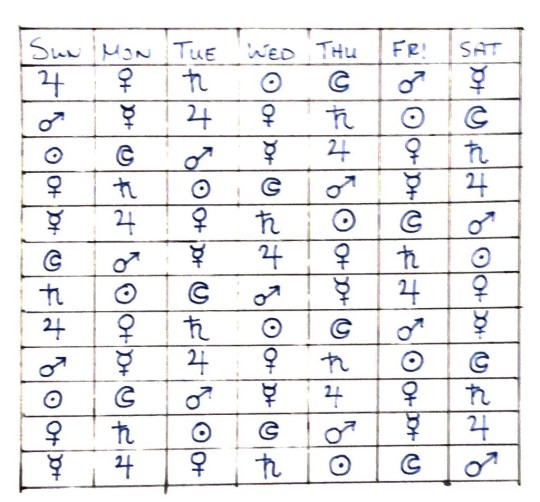 SUN MON TUE WED THU FRI SAT
♃ ♀ ♄ ☉ ☾ ♂ ☿
♂ ☿ ♃ ♀ ♄ ☉ ☾
☉ ☾ ♂ ☿ ♃ ♀ ♄
♀ ♄ ☉ ☾ ♂ ☿ ♃
☿ ♃ ♀ ♄ ☉ ☾ ♂
☾ ♂ ☿ ♃ ♀ ♄ ☉
♄ ☉ ☾ ♂ ☿ ♃ ♀
♃ ♀ ♄ ☉ ☾ ♂ ☿
♂ ☿ ♃ ♀ ♄ ☉ ☾
☉ ☾ ♂ ☿ ♃ ♀ ♄
♀ ♄ ☉ ☾ ♂ ☿ ♃
☿ ♃ ♀ ♄ ☉ ☾ ♂